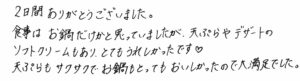 2日間ありがとうございました。
食事はお鍋だけかと思っていましたが、天ぷらやデザートの
ソフトクリームもあり、とてもうれしかったです♡
天ぷらもサクサクでお鍋もとってもおいしかったので大満足でした。